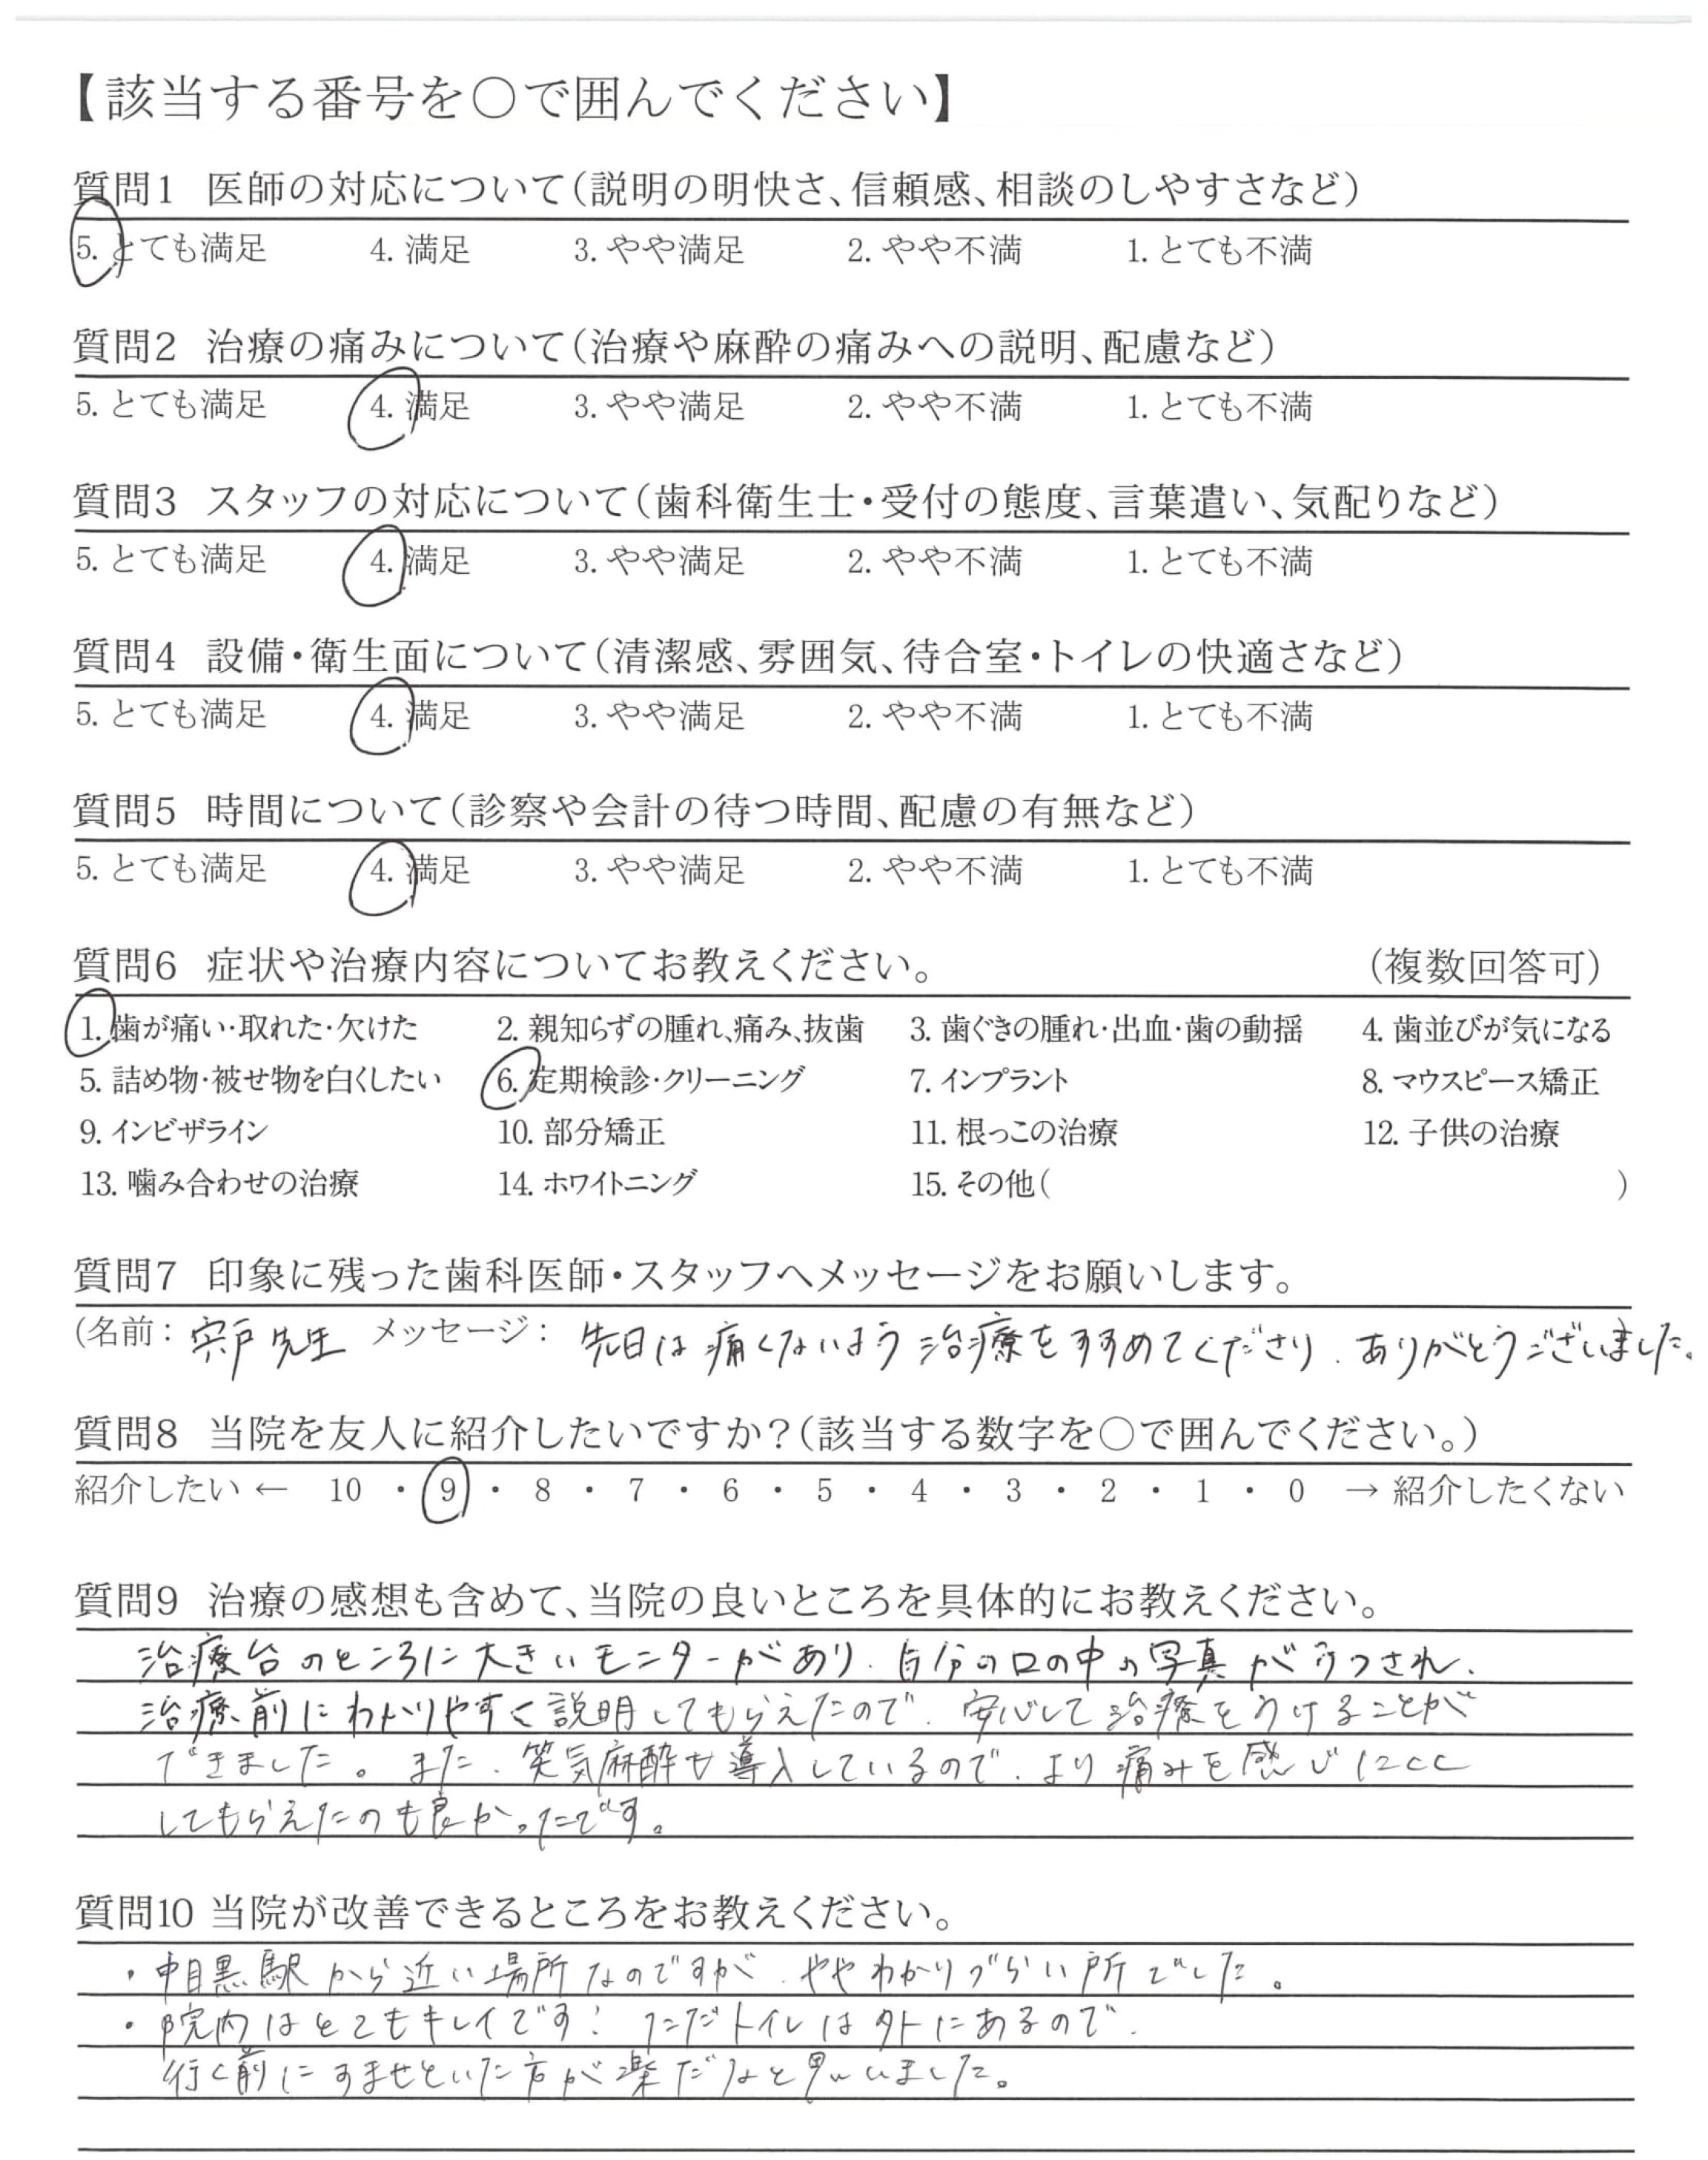 【該当する番号を○で囲んでください】
質問1 医師の対応について（説明の明快さ、信頼感、相談のしやすさなど）
5. とても満足 4. 満足 3. やや満足 2. やや不満 1. とても不満
質問2 治療の痛みについて（治療や麻酔の痛みへの説明、配慮など）
5. とても満足 4. 満足 3. やや満足 2. やや不満 1. とても不満
質問3 スタッフの対応について（歯科衛生士・受付の態度、言葉遣い、気配りなど）
5. とても満足 4. 満足 3. やや満足 2. やや不満 1. とても不満
質問4 設備・衛生面について（清潔感、雰囲気、待合室・トイレの快適さなど）
5. とても満足 4. 満足 3. やや満足 2. やや不満 1. とても不満
質問5 時間について（診察や会計の待つ時間、配慮の有無など）
5. とても満足 4. 満足 3. やや満足 2. やや不満 1. とても不満
質問6 症状や治療内容についてお教えください。 （複数回答可）
1. 歯が痛い・取れた・欠けた 2. 親知らずの腫れ、痛み、抜歯 3. 歯ぐきの腫れ・出血・歯の動揺 4. 歯並びが気になる
5. 詰め物・被せ物を白くしたい 6. 定期検診・クリーニング 7. インプラント 8. マウスピース矯正
9. インビザライン 10. 部分矯正 11. 根っこの治療 12. 子供の治療
13. 噛み合わせの治療 14. ホワイトニング 15. その他（ ）
質問7 印象に残った歯科医師・スタッフへメッセージをお願いします。
（名前：宍戸先生 メッセージ：先日は痛くないよう治療をすすめてくださり、ありがとうございました。
質問8 当院を友人に紹介したいですか？（該当する数字を○で囲んでください。）
紹介したい ← 10 ・ 9 ・ 8 ・ 7 ・ 6 ・ 5 ・ 4 ・ 3 ・ 2 ・ 1 ・ 0 → 紹介したくない
質問9 治療の感想も含めて、当院の良いところを具体的にお教えください。
治療台のところに大きいモニターがあり、自分の口の中の写真がうつされ、
治療前にわかりやすく説明してもらえたので、安心して治療をうけることが
できました。また、笑気麻酔も導入しているので、より痛みを感じにくく
してもらえたのも良かったです。
質問10 当院が改善できるところをお教えください。
・中目黒駅から近い場所なのですが、ややわかりづらい所でした。
・院内はとてもキレイです！ただトイレは外にあるので、
行く前にすませといた方が楽だなと思いました。